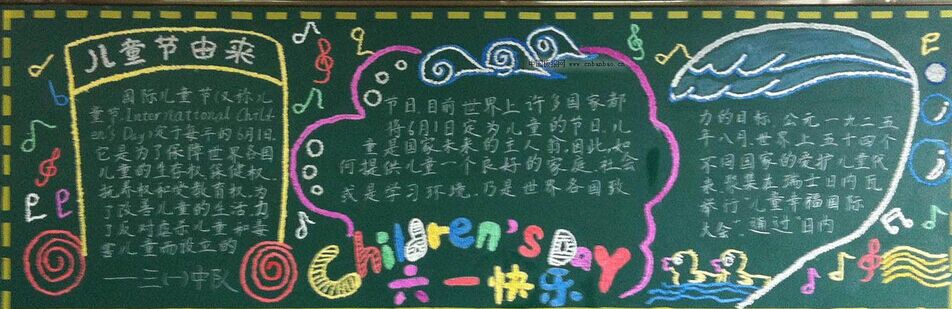 儿童节由来
国际儿童节(又称儿
童节,International Child-
en's Day)定于每年的6月1日.
它是为了保障世界各国
儿童的生存权、保健权、
抚养权和受教育权,为
了改善儿童的生活,为
了反对虐杀儿童和毒
害儿童而设立的
三(一)中队
节日.目前世界上许多国家都
将6月1日定为儿童的节日.儿
童是国家未来的主人翁.因此,如
何提供儿童一个良好的家庭、社会
或是学习环境,乃是世界各国致
www.cnbanbao.cn
力的目标.公元一九二五
年八月,世界上五十四个
不同国家的爱护儿童代
表,聚集在瑞士日内瓦
举行"儿童幸福国际
大会".通过"日内
Children's Day
六一快乐